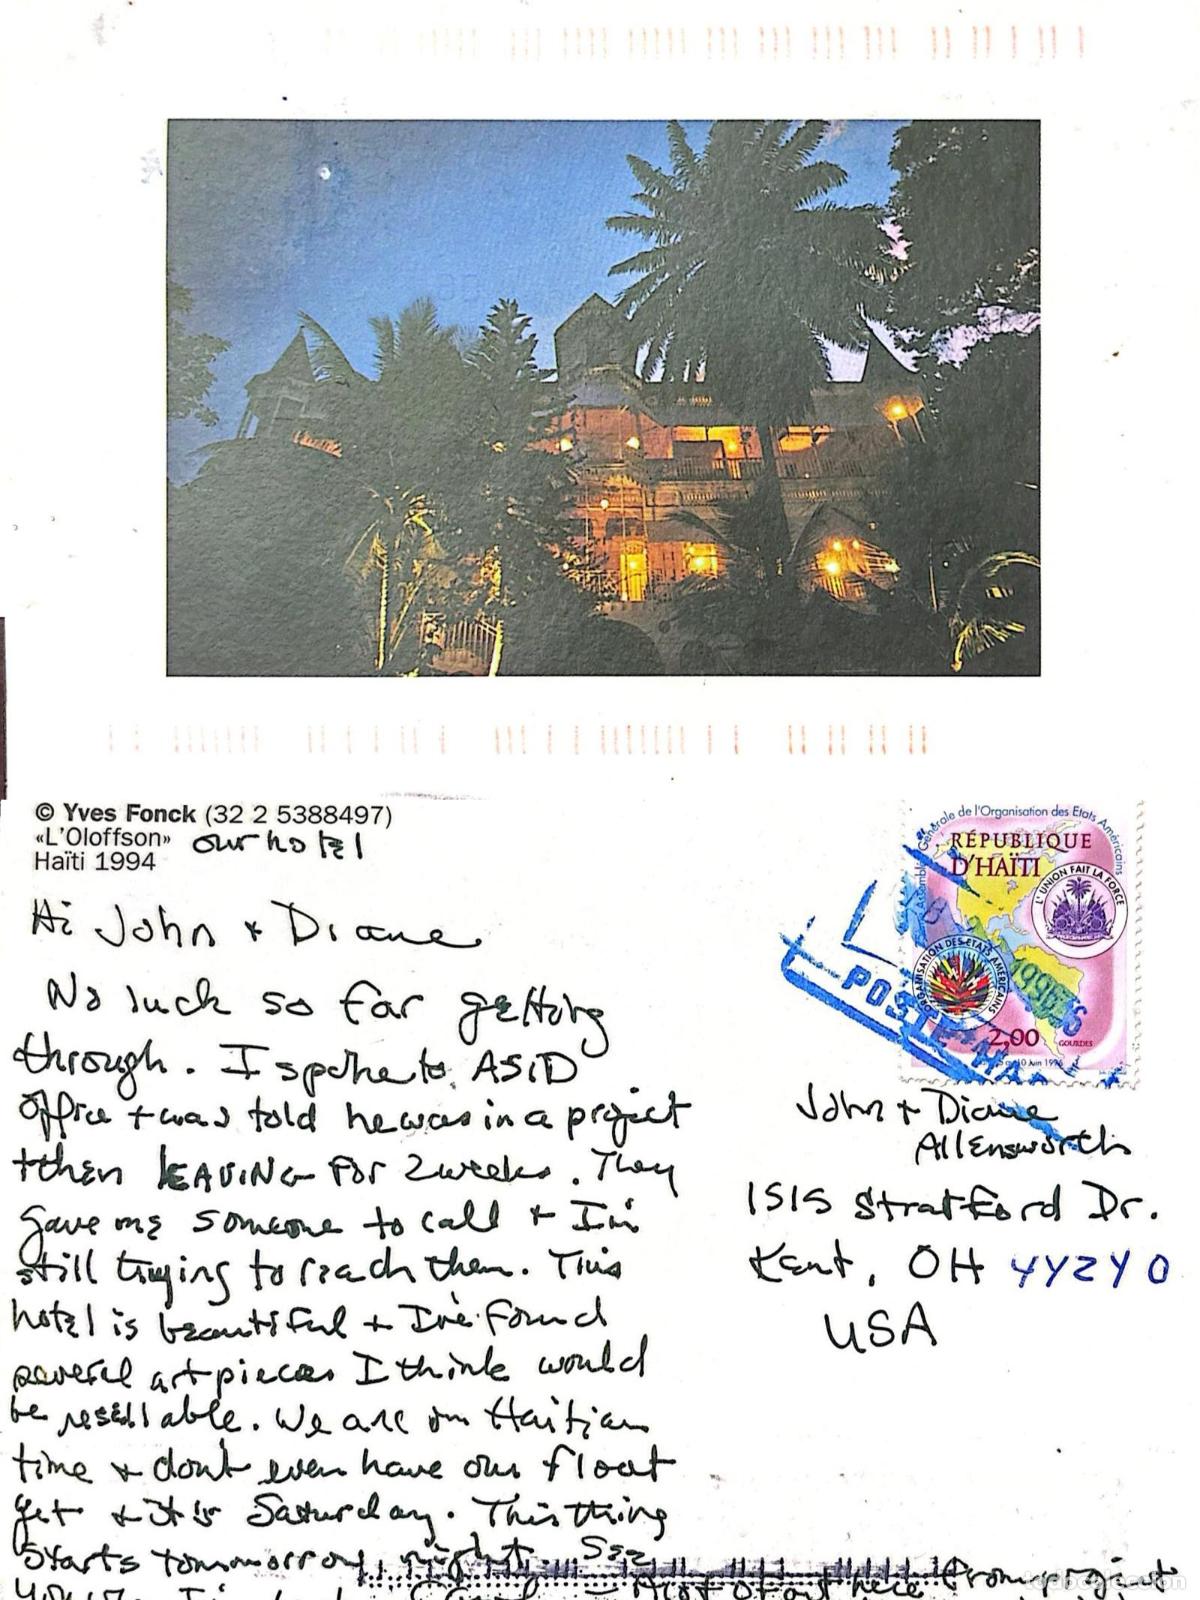 © Yves Fonck (32 2 5388497)
«L'Oloffson» our hotel
Haïti 1994
Hi John + Diane
No luck so far getting
through. I spoke to ASID
office + was told he was in a project
+ then LEAVING FOR 2 weeks. They
gave me someone to call + I'm
still trying to reach them. This
hotel is beautiful + I've found
several art pieces I think would
be resellable. We are on Haitian
time + don't even have our float
yet + it is Saturday. This thing
starts tomorrow night. See
Générale de l'Organisation des Etats Américains
RÉPUBLIQUE
D'HAÏTI
L'UNION FAIT LA FORCE
ORGANISATION DES ETATS AMÉRICAINS
2,00 GOURDES
POSTE
John + Diane
Allensworth
1515 Stratford Dr.
Kent, OH 44240
USA
from project
todocoleccion